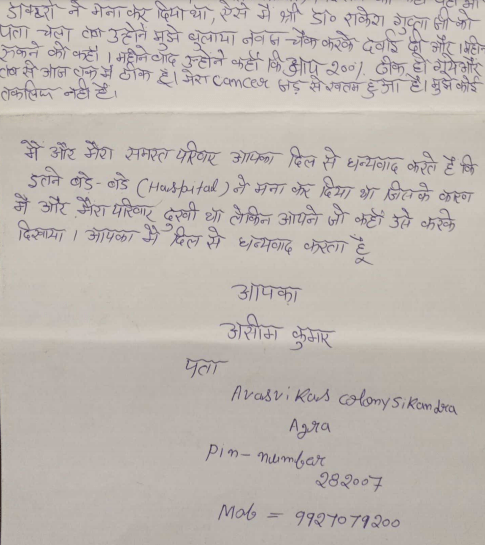 डाक्टरो ने मना कर दिया था, ऐसे में श्री डा० राकेश गुप्ता जी का
पता चेला तब उन्होने मुझे बुलाया नवज चैक करके दवाई दी और 1 महीने
रुकने को कहाँ । महीने बाद उन्होने कहाँ कि आप २००% ठीक हो गये और
तब से आज तक में ठीक है। मेरा cancer जड़ से खतम हुआ है। मुझे कोई
तकलिफ नहीं है।
मैं और मेरा समस्त परिवार आपका दिल से धन्यवाद करते है कि
इतने बडे-बडे (Haspital) ने मना कर दिया था जिसके कारण
में और मेरा परिवार दुखी था लेकिन आपने जो कहाँ उसे करके
दिखाया । आपका मैं दिल से धन्यवाद करता हूँ
आपका
असीम कुमार
पता
Avasvikas colony sikandra
Agra
Pin-numbar
282007
Mob = 9927079200